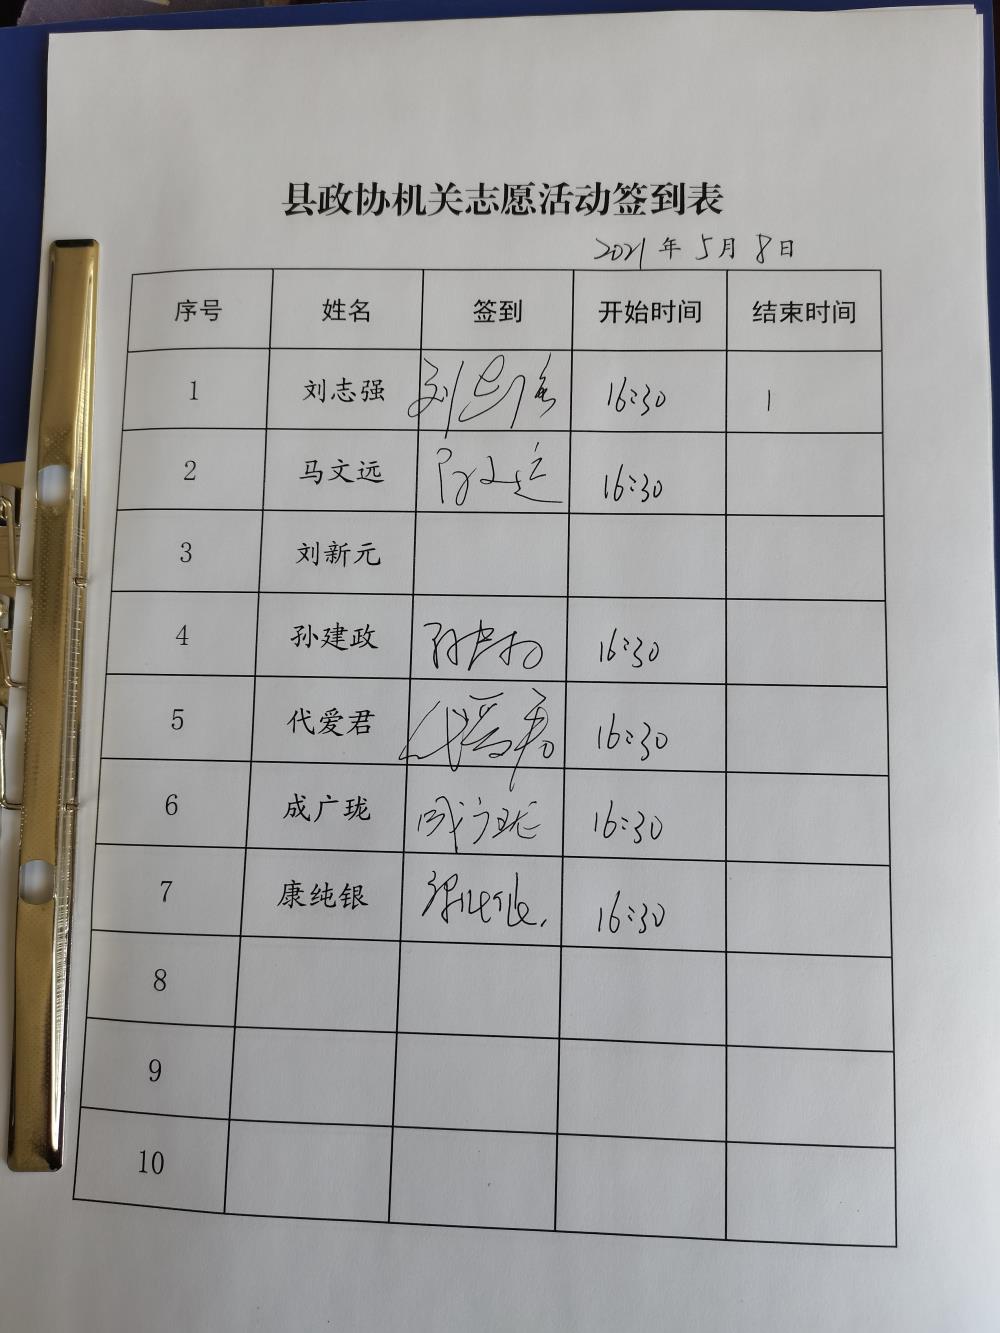 县政协机关志愿活动签到表
2021年5月8日
序号 姓名 签到 开始时间 结束时间
1 刘志强 刘志强 16:30 1
2 马文远 16:30
3 刘新元
4 孙建政 孙建政 16:30
5 代爱君 代爱君 16:30
6 成广珑 成广珑 16:30
7 康纯银 康纯银 16:30
8
9
10